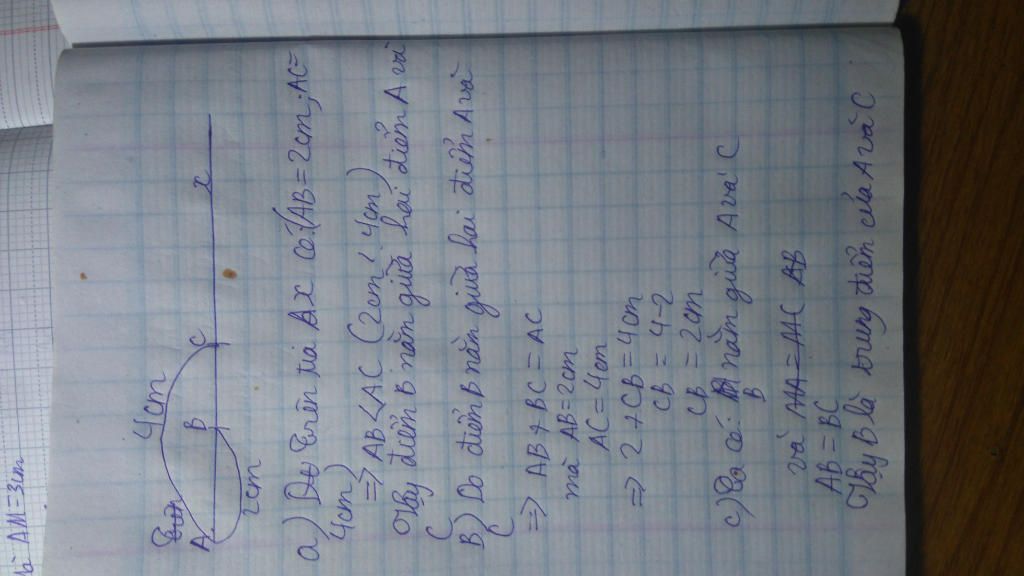 là AM = 3cm
4cm
A B C x
2cm
a) Trên tia Ax có: (AB = 2cm; AC =
4cm)
=> AB < AC (2cm < 4cm)
Vậy điểm B nằm giữa hai điểm A và
C
B) Do điểm B nằm giữa hai điểm A và
C
=> AB + BC = AC
mà AB = 2cm
AC = 4cm
=> 2 + CB = 4cm
CB = 4 - 2
CB = 2cm
c) Ta có: B nằm giữa A và C
và
AB = BC
Vậy B là trung điểm của A và C